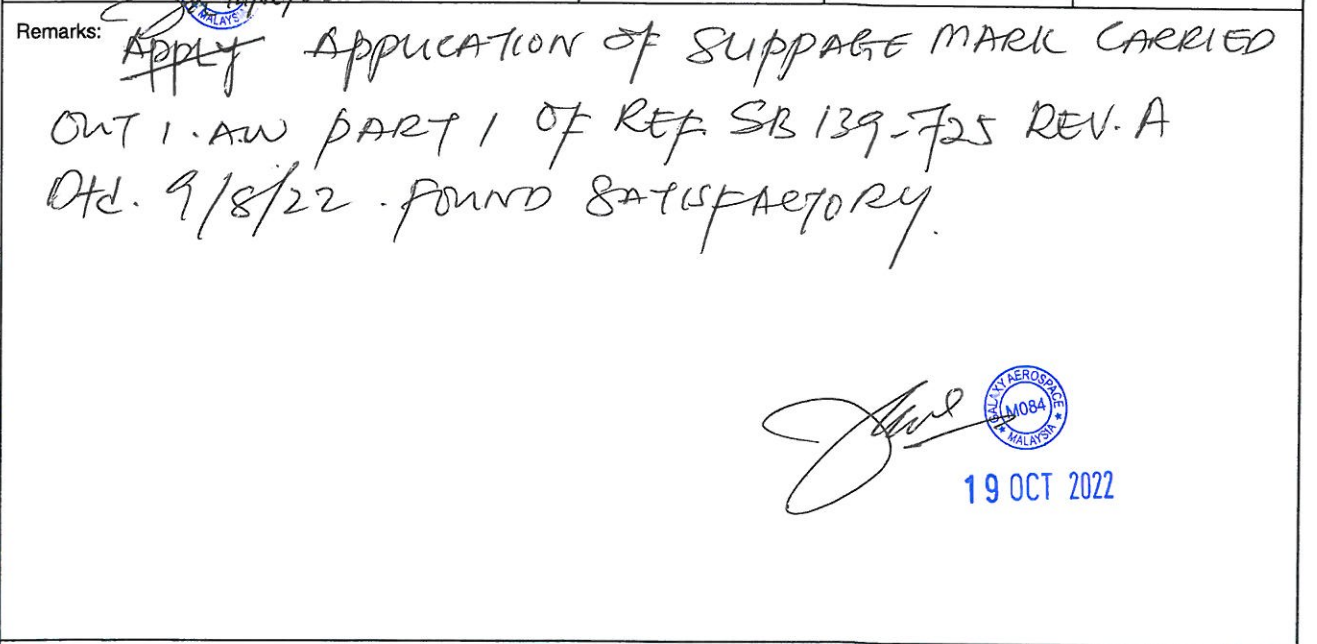 MALAYSIA
Remarks: Apply APPLICATION OF SLIPPAGE MARK CARRIED
OUT I.AW PART 1 OF REF. SB 139-725 REV. A
Dtd. 9/8/22. FOUND SATISFACTORY.
GALAXY AEROSPACE
M084
★ MALAYSIA ★
19 OCT 2022